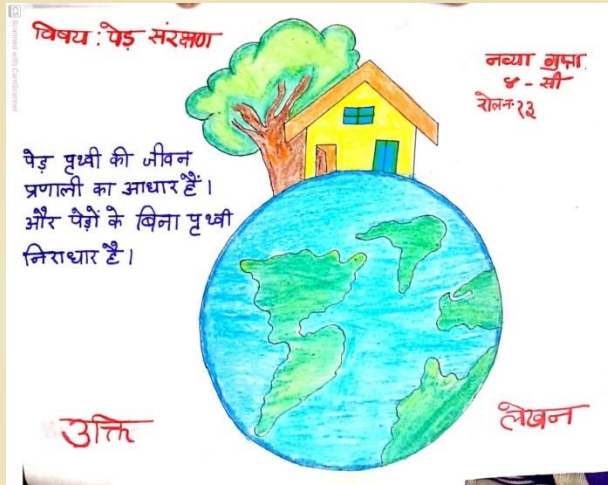 CS Scanned with CamScanner
विषय : पेड़ संरक्षण
नव्या गुप्ता
४ - सी
रोल न. २३
पेड़ पृथ्वी की जीवन
प्रणाली का आधार हैं।
और पेड़ों के बिना पृथ्वी
निराधार है।
उक्ति
लेखन